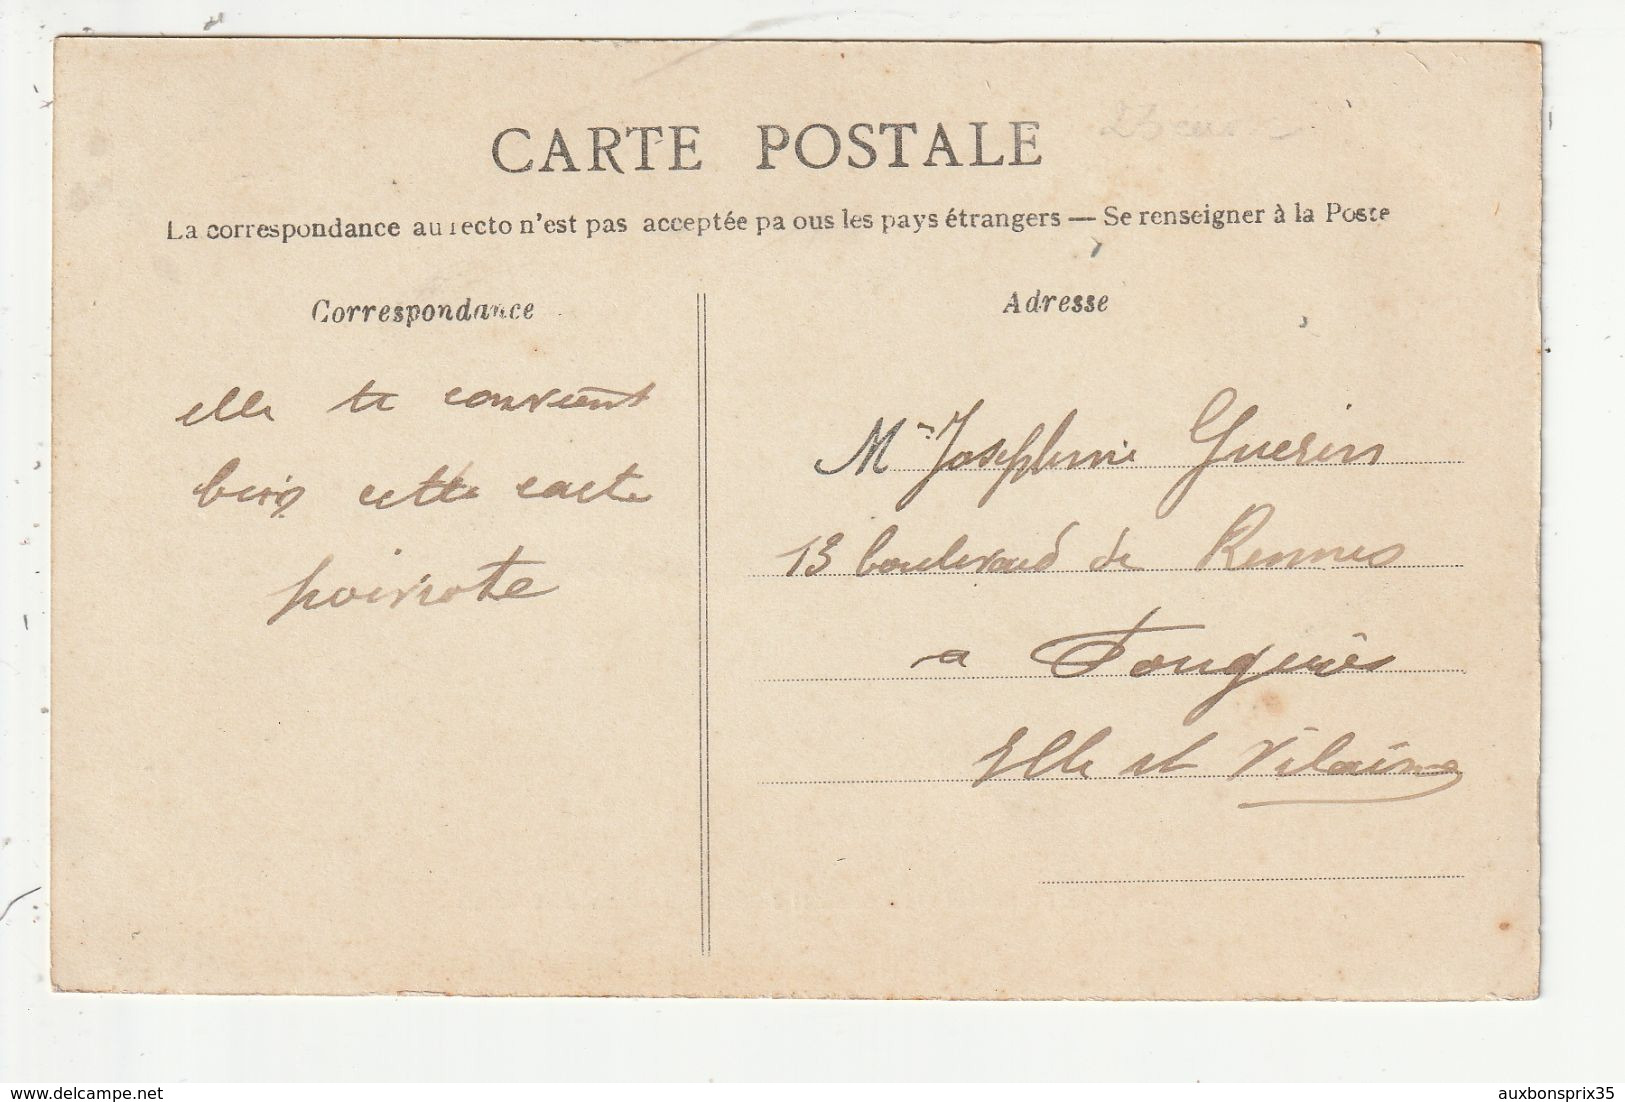 CARTE POSTALE
La correspondance au recto n'est pas acceptée pa ous les pays étrangers — Se renseigner à la Poste
Correspondance
elle te convient
bien cette carte
Adresse
Josephine Guerin
13 boulevard de Rennes
a Fougères
Ille et Vilaine
delcampe.net
auxbonsprix35